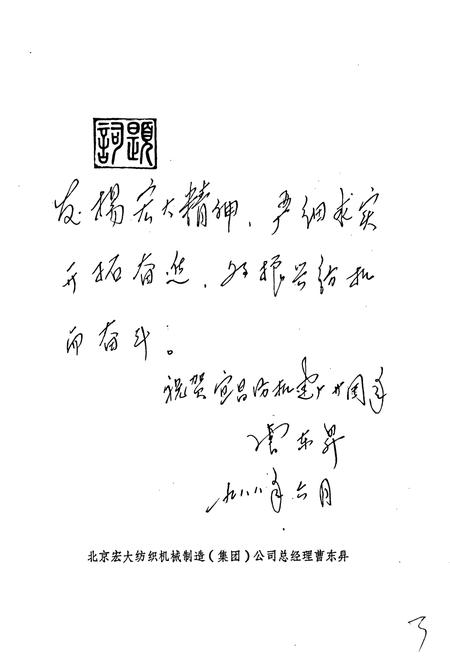 題詞
发揚宏大精神、严细求实
开拓奋进、为振兴纺机
而奋斗。
祝贺宜昌纺机建厂廿周年
曹东昇
一九八八年六月
北京宏大纺织机械制造(集团)公司总经理曹东昇
3